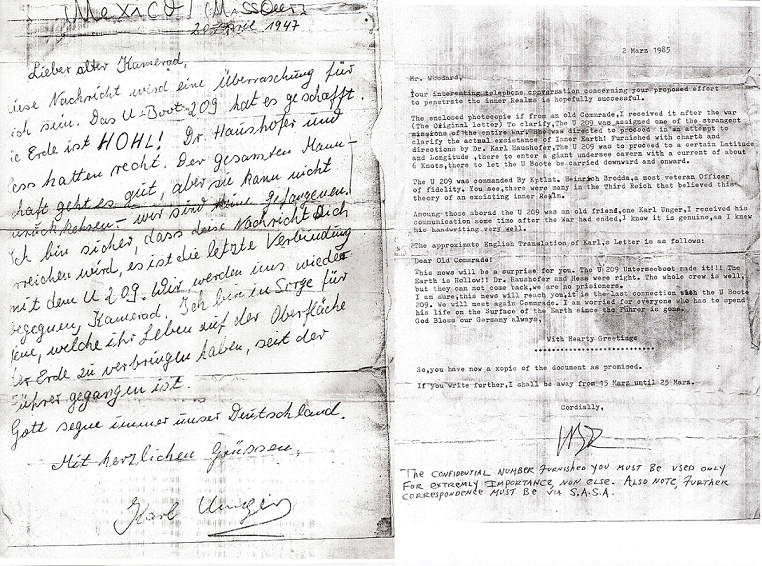 Mexico / (Missouri)
20 April 1947
Lieber alter Kamerad,
iese Nachricht wird eine Überraschung für
ich sein. Das U-Boot 209 hat es geschafft.
ie Erde ist HOHL! Dr. Haushofer und
ess hatten recht. Der gesamten Mann-
haft geht es gut, aber sie kann nicht
urückkehren - wir sind keine Gefangenen!
ch bin sicher, dass diese Nachricht Dich
rreichen wird, es ist die letzte Verbindung
mit dem U 209. Wir werden uns wieder
begegnen, Kamerad, Ich bin in Sorge für
jene, welche ihr Leben auf der Oberfläche
der Erde zu verbringen haben, seit der
ührer gegangen ist.
Gott segne immer unser Deutschland.
Mit herzlichen Grüssen,
Karl Unger
2 Marz 1985
Mr. Woodard,
Your interesting telephone conversation concerning your proposed effort
to penetrate the inner Realms is hopefully successful.
The enclosed photocopie if from an old Comrade,I received it after the war
(The Original letter) To clarify,The U 209 was assigned one of the strangest
missions of the entire war. She was directed to proceed in an attempt to
clarify the actual exsistance of Inner Earth! Furnished with charts and
directions by Dr. Karl Haushofer,The U 209 was to proceed to a certain Latitude
and Longitude ,there to enter a giant undersea cavern with a current of about
6 Knots,there to let the U Boote be carried downward and onward.
The U 209 was commanded by Kptlnt. Heinrich Brodda,a most veteran Officer
of fidelity. You see,there were many in the Third Reich that believed this
theory of an exsisting inner Realm.
Amoung those abored the U 209 was an old friend,one Karl Unger,I received his
communication some time after the War had ended,I know it is genuine,as I knew
his handwriting very well.
The approximate English Translation of Karl,s Letter is as follows:
Dear Old Commrade!
This news will be a surprise for you. The U 209 Unterseeboot made it!!! The
Earth is Hollow!! Dr. Haushofer and Hess were right. The whole crew is well,
but they can not come back,we are no prisioners.
I am sure,this news will reach you,it is the last connection with the U Boote
209. We will meet again Commrade. I am worried for everyone who has to spend
his life on the Surface of the Earth since the Führer is gone.
God Bless our Germany always.
With Hearty Greetings
So,you have now a xopie of the document as promised.
If you write further,I shall be away from 15 Marz until 25 Marz.
Cordially,
THE CONFIDENTIAL NUMBER FURNISHED YOU MUST BE USED ONLY
FOR EXTREMLY IMPORTANCE, NON ELSE. ALSO NOTE, FURTHER
CORRESPONDENCE MUST BE VIA S.A.S.A.